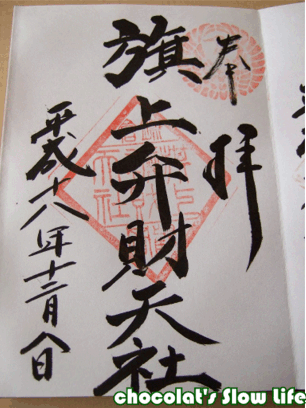 奉拝
旗上弁財天社
平成十八年十二月八日
chocolat's Slow Life